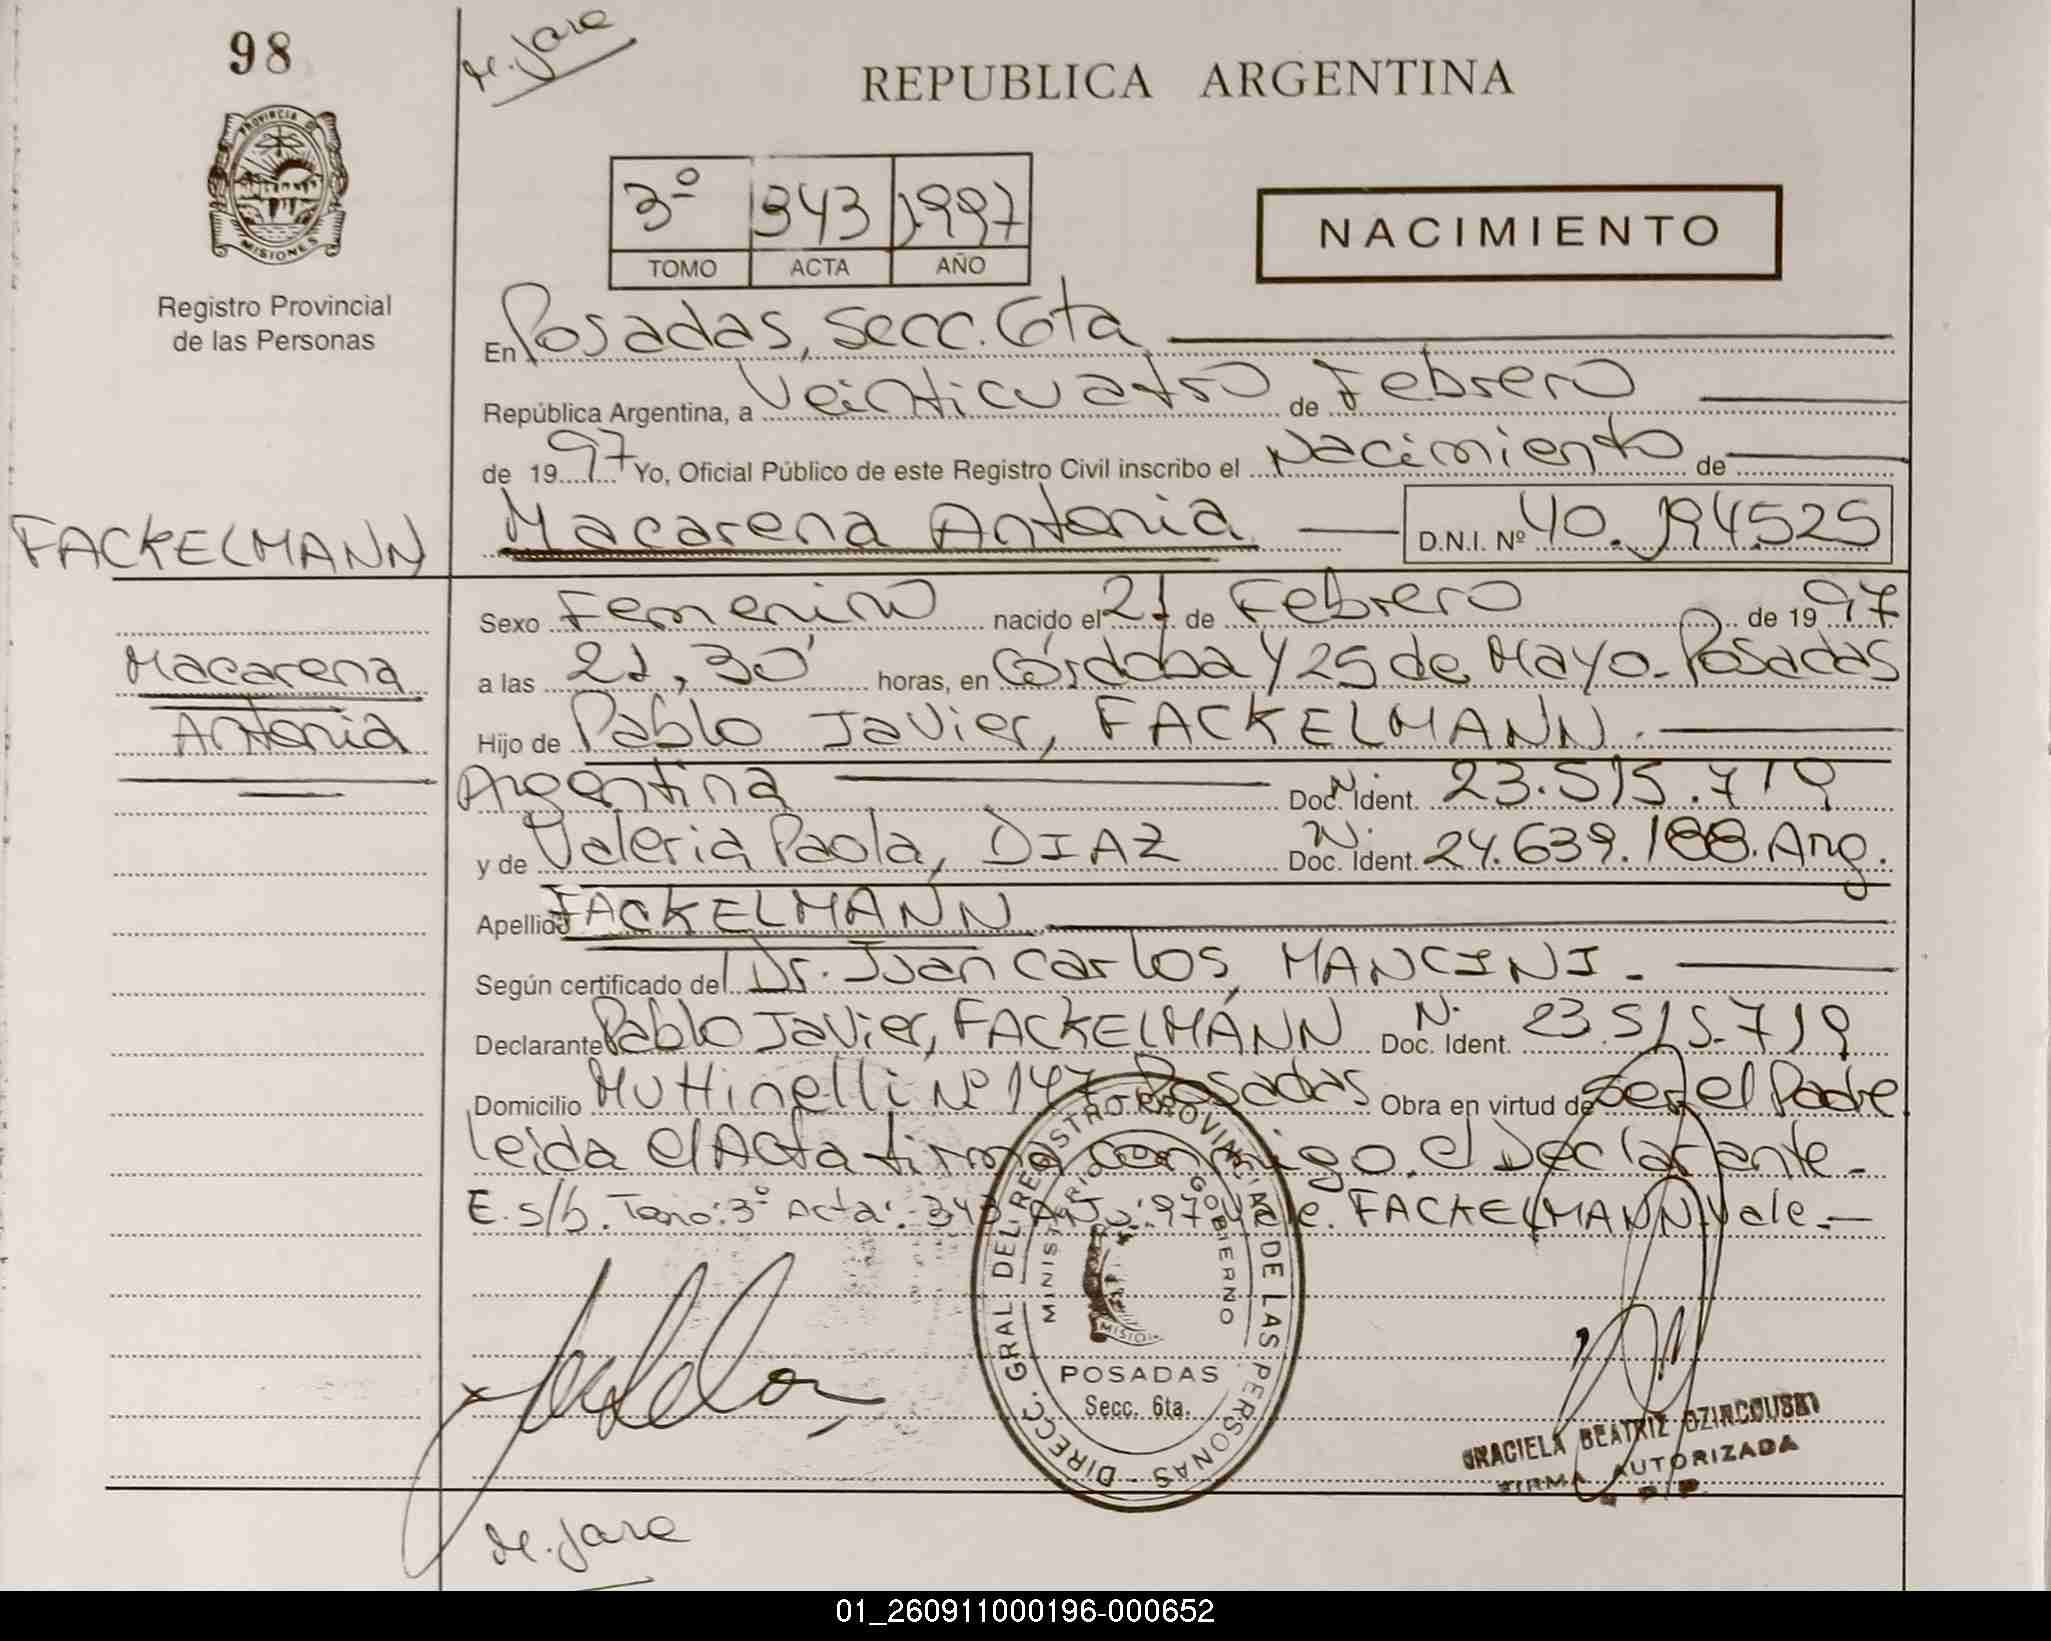 98
M. Jara
REPUBLICA ARGENTINA
PROVINCIA DE
MISIONES
Registro Provincial
de las Personas
3º 343 1997
TOMO ACTA AÑO
NACIMIENTO
En Posadas, Secc. 6ta
República Argentina, a Veinticuatro de Febrero
de 1997 Yo, Oficial Público de este Registro Civil inscribo el Nacimiento de
FACKELMANN
Macarena Antonia D.N.I. Nº 40.194.525
Macarena
Antonia
Sexo Femenino nacido el 21 de Febrero de 1997
a las 21,30' horas, en Córdoba y 25 de Mayo - Posadas
Hijo de Pablo Javier, FACKELMANN.
Argentina Doc. N. Ident. 23.515.719
y de Valeria Paola, DIAZ Doc. N. Ident. 24.639.188. Arg.
Apellido FACKELMANN
Según certificado del Dr. Juan Carlos, MANCINI. -
Declarante Pablo Javier, FACKELMANN Doc. N. Ident. 23.515.719
Domicilio Muttinelli Nº 147 Posadas Obra en virtud de Ser el Padre
leida el Acta firma conmigo, el Declarante.-
E. s/b. Tomo: 3º Acta: 343 Año: 97 Vale. FACKELMANN Vale.-
DIRECC. GRAL DEL REGISTRO PROVINCIAL DE LAS PERSONAS -
MINISTERIO GOBIERNO
POSADAS
Secc. 6ta.
GRACIELA BEATRIZ
FIRMA AUTORIZADA
M. Jara
01_260911000196-000652